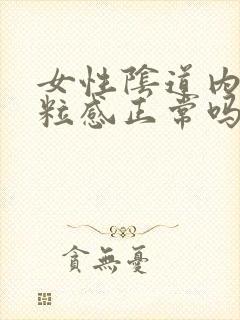 女性陰道内
粒感正常吗
貪無憂